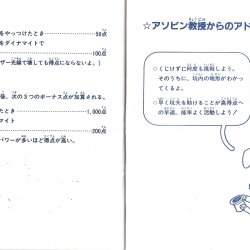 をやっつけたとき 50点
をダイナマイトで
100点
ザー光線で壊しても得点にならないよ。)
後、次の3つのボーナス点が加算される。
たとき 1,000点
マイト
200点
パワーが多いほど得点が高い。
☆アソビン教授からのアド
○くじけずに何度も挑戦しよう。
そのうちに、坑内の地形がわかっ
てくるよ。
○早く坑夫を助けることが高得点へ
の早道。能率よく活動しよう!